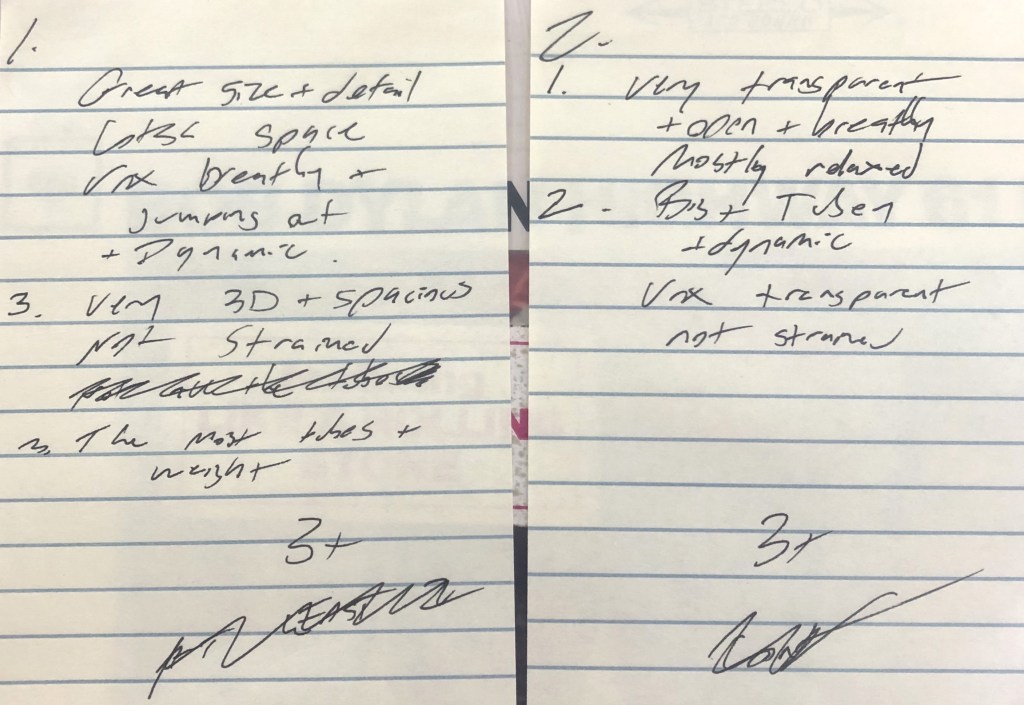 1.
Great size + detail
Lots space
Vox breathy +
Jumping out
+ Dynamic.
3. Very 3D + spacious
Not Strained
3. The most tubes +
weight
3+
2.
1. Very transparent
+ open + breathy
Mostly relaxed
2. Big + Tubey
+ dynamic
Vox transparent
not strained
3+